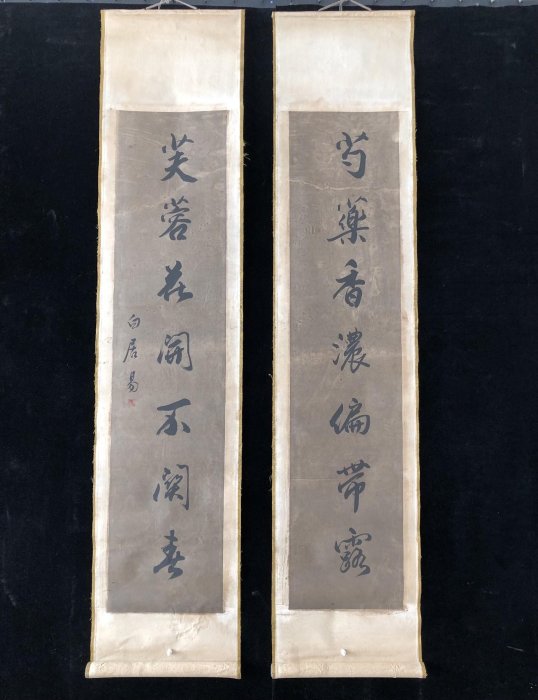 芍藥香濃偏帶露
芙蓉花開不關春
白居易